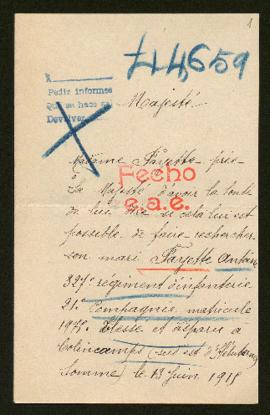 1
44659
Pedir informes
que se hace
Devolver
Majesté
Madame Fayette prie
Sa Majesté d'avoir la bonté
de lui dire si cela lui est
possible de faire rechercher
son mari Fayette Antoine
Fecho
e.a.e.
327e régiment d'infanterie
21e Compagnie matricule
Blessé et disparu à
Colincamps (sud est d'Hébuterne
Somme) le 13 Juin 1915